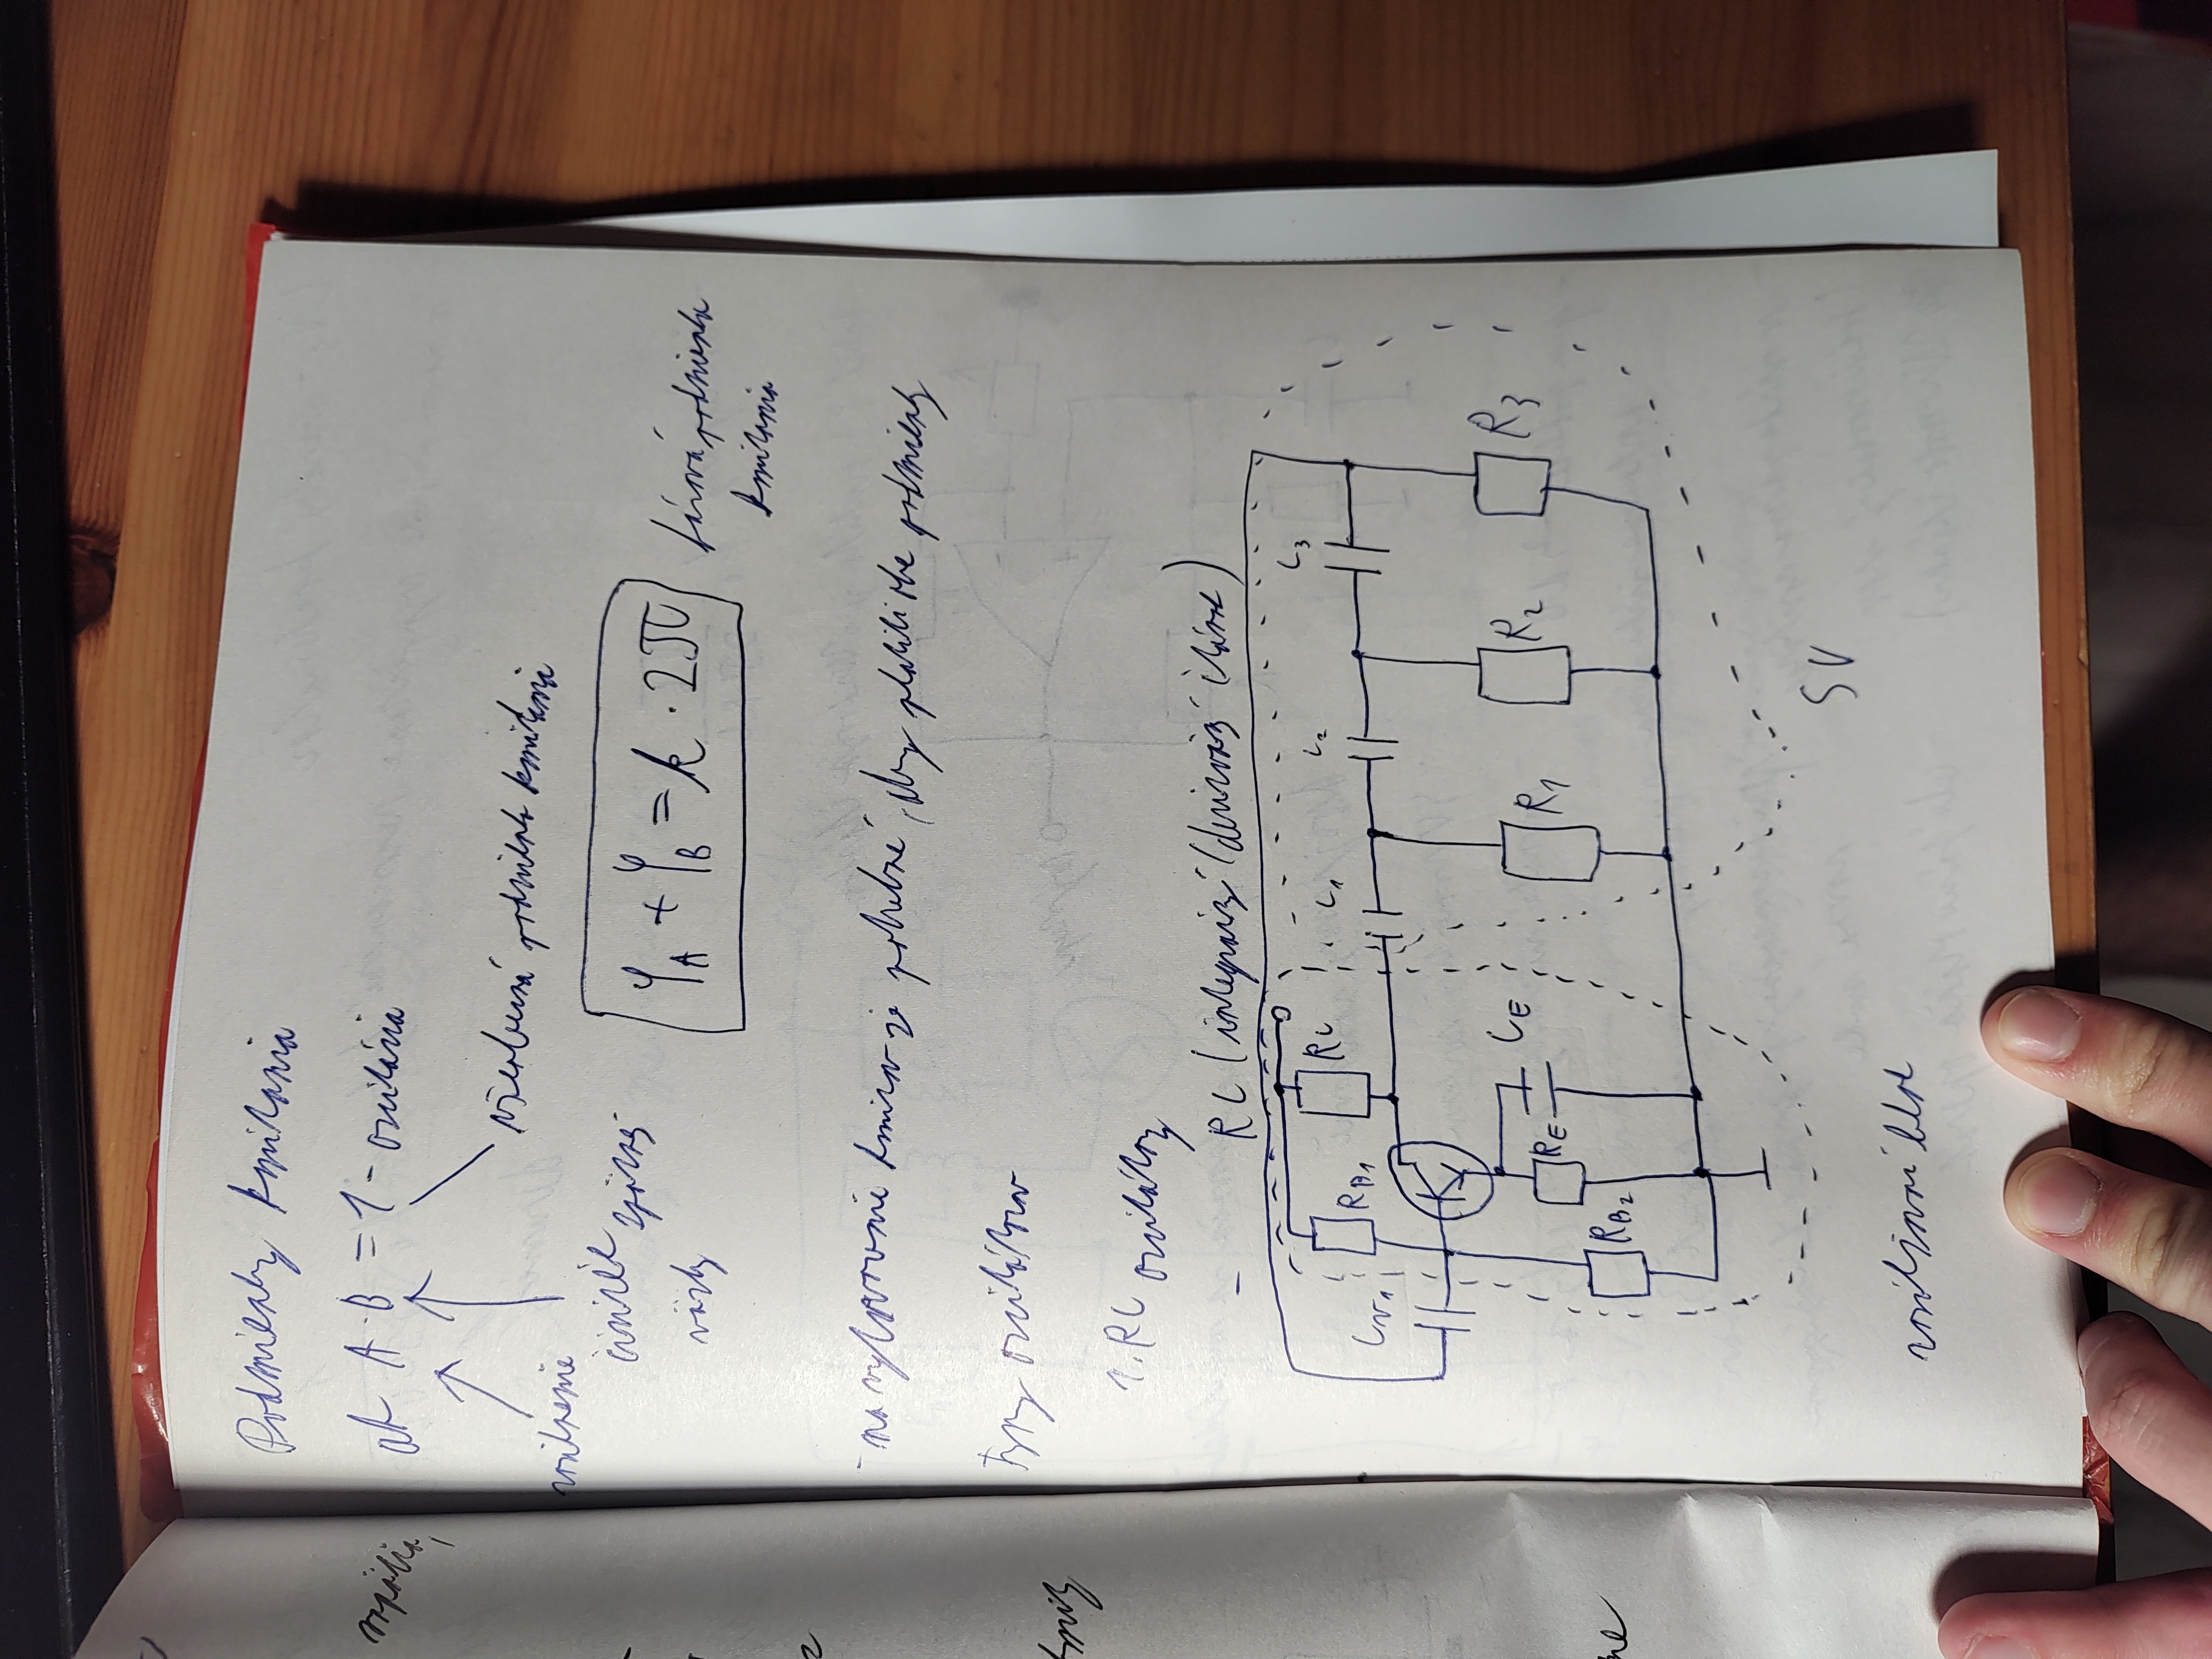 Podmienky kmitania
ak A·B = 1 - oscilácia
zosilnenie
činiteľ spätnej
väzby
všeobecná podmienka kmitania
φA + φB = k · 2π
fázová podmienka
kmitania
- na vytvorenie kmitov je potrebné, aby platili obe podmienky
Typy oscilátorov
1. RC oscilátory
- RC (integračný/derivačný článok)
RB1
RC
C1
C2
C3
Cv1
RE
CE
R1
R2
R3
RB2
SV
zosilňovací blok
napätia,